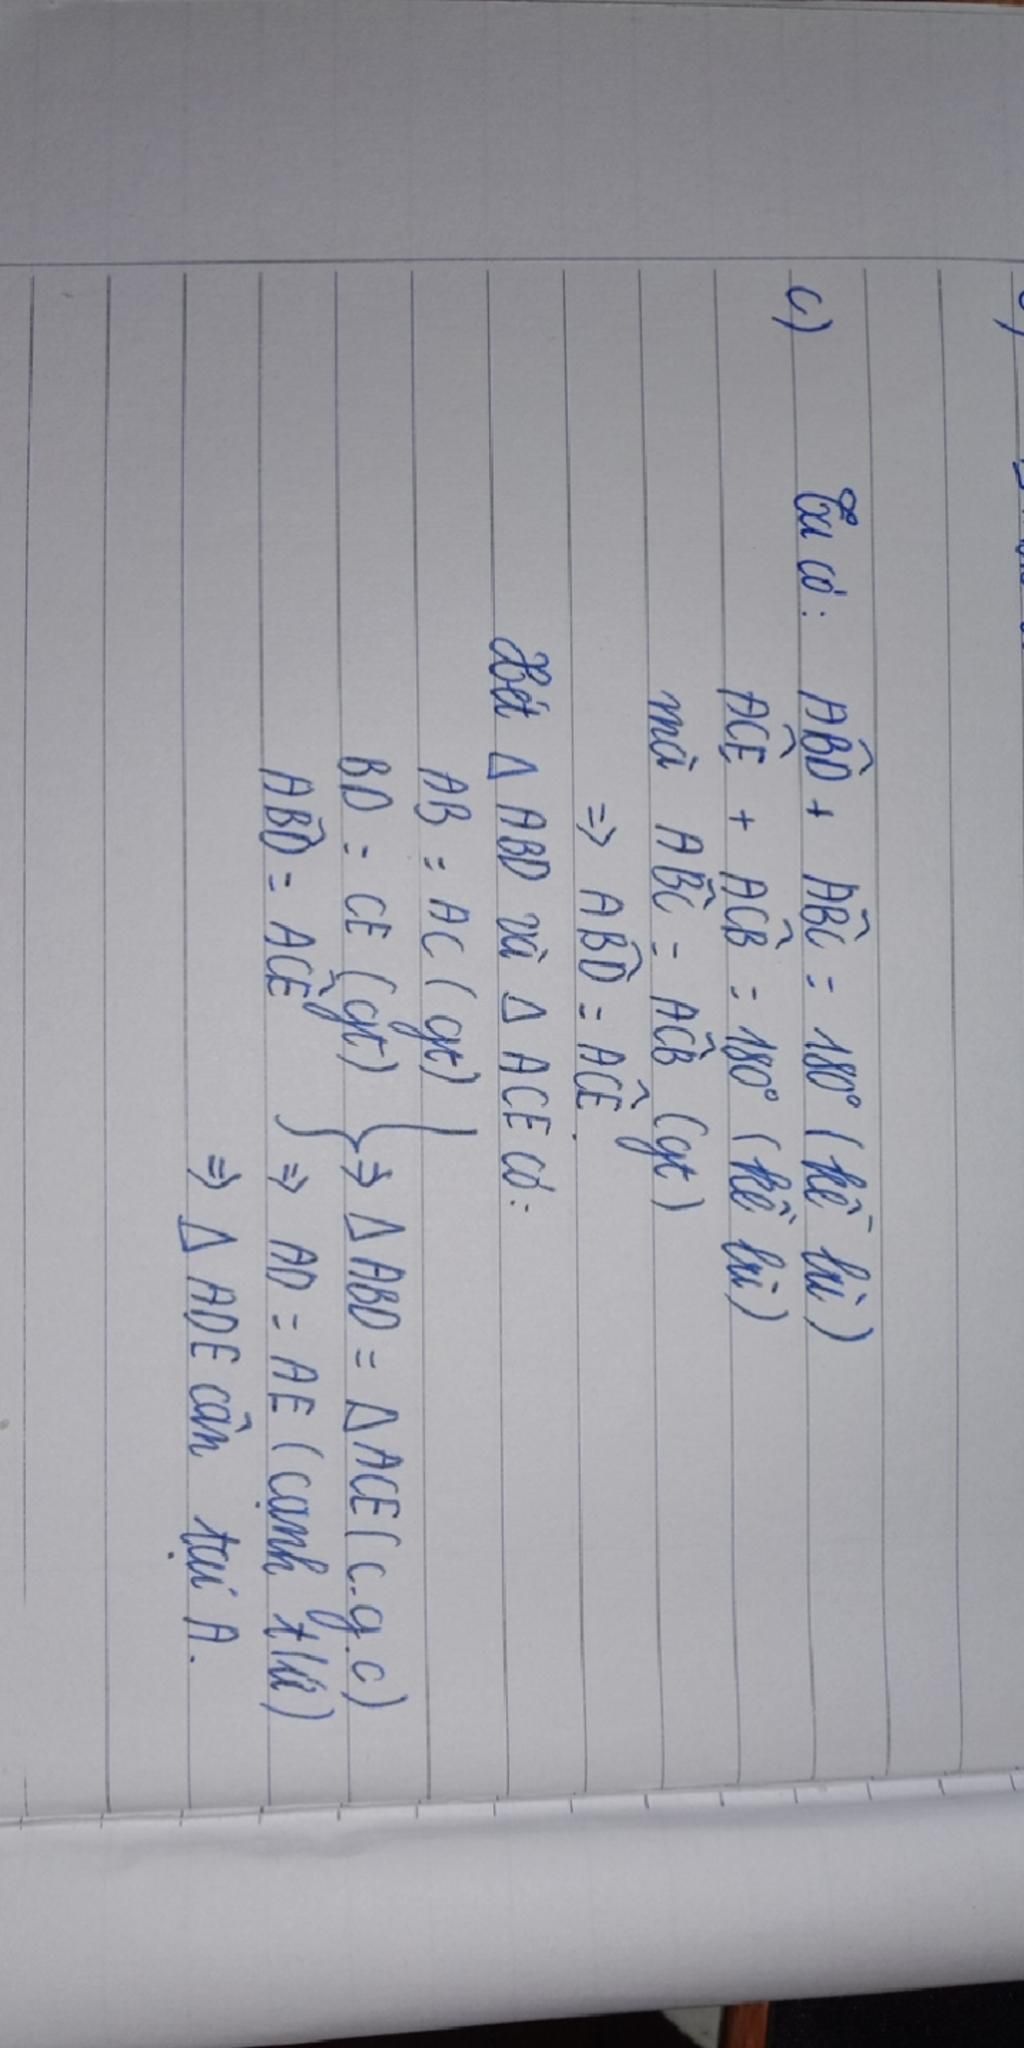 c) Ta có: ABD̂ + ABĈ = 180° (kề bù)
ACÊ + ACB̂ = 180° (kề bù)
mà ABĈ = ACB̂ (gt)
=> ABD̂ = ACÊ.
Xét Δ ABD và Δ ACE có:
AB = AC (gt)
BD = CE (gt) } => Δ ABD = Δ ACE (c.g.c)
ABD̂ = ACÊ => AD = AE (cạnh t/ứ)
=> Δ ADE cân tại A.